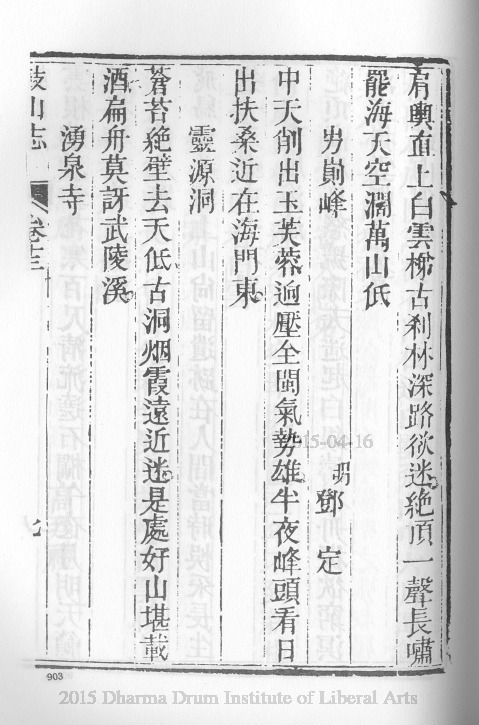 肩輿直上白雲梯古刹林深路欲迷絕頂一聲長嘯
罷海天空濶萬山低
屴崱峰
明鄧定
中天削出玉芙蓉逈壓全閩氣勢雄半夜峰頭看日
出扶桑近在海門東
靈源洞
蒼苔絕壁去天低古洞烟霞遠近迷是處好山堪載
酒扁舟莫訝武陵溪
湧泉寺
鼓山志 卷十三 九
903
2015-04-16
2015 Dharma Drum Institute of Liberal Arts